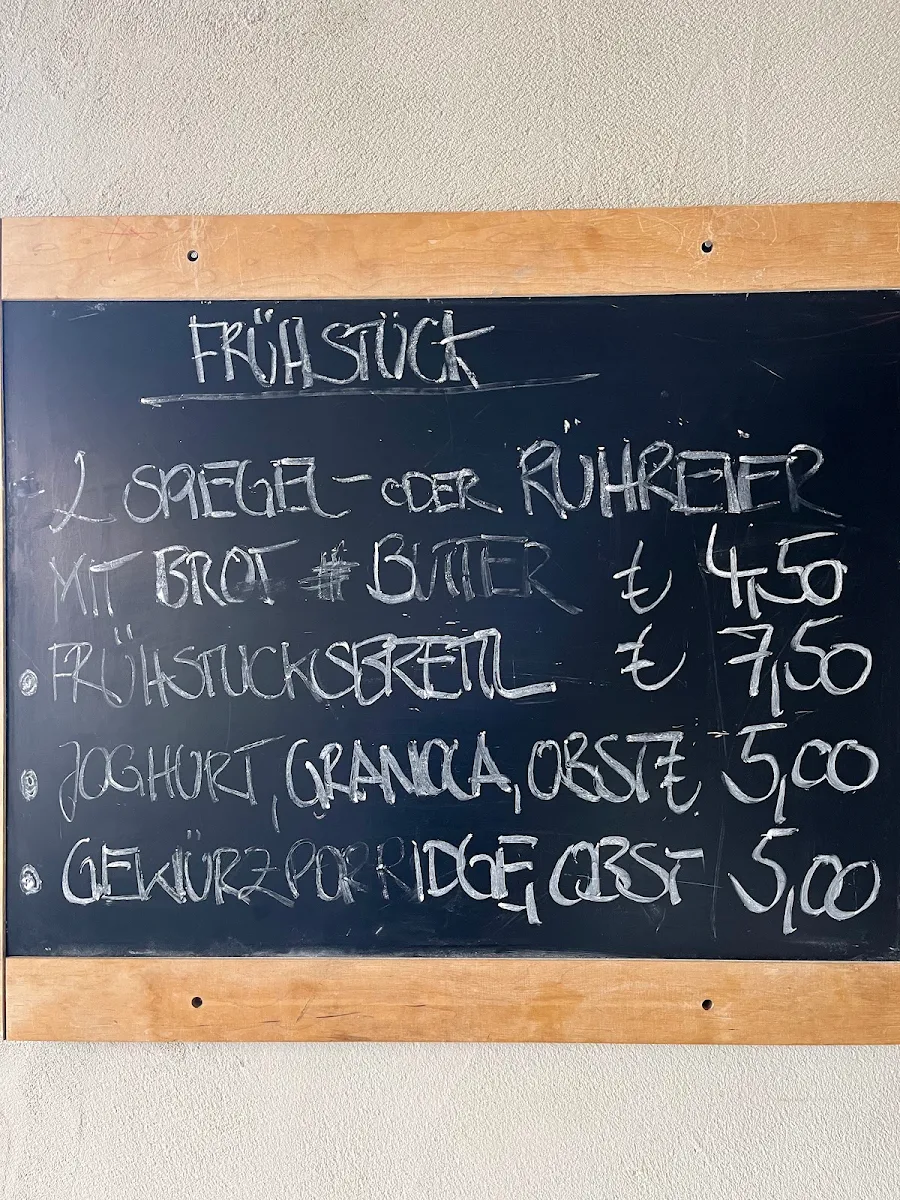 FRÜHSTÜCK
2 SPIEGEL- ODER RÜHREIER
MIT BROT # BUTTER € 4,50
FRÜHSTÜCKSBRETTL € 7,50
JOGHURT, GRANOLA, OBST € 5,00
GEWÜRZPORRIDGE, OBST 5,00